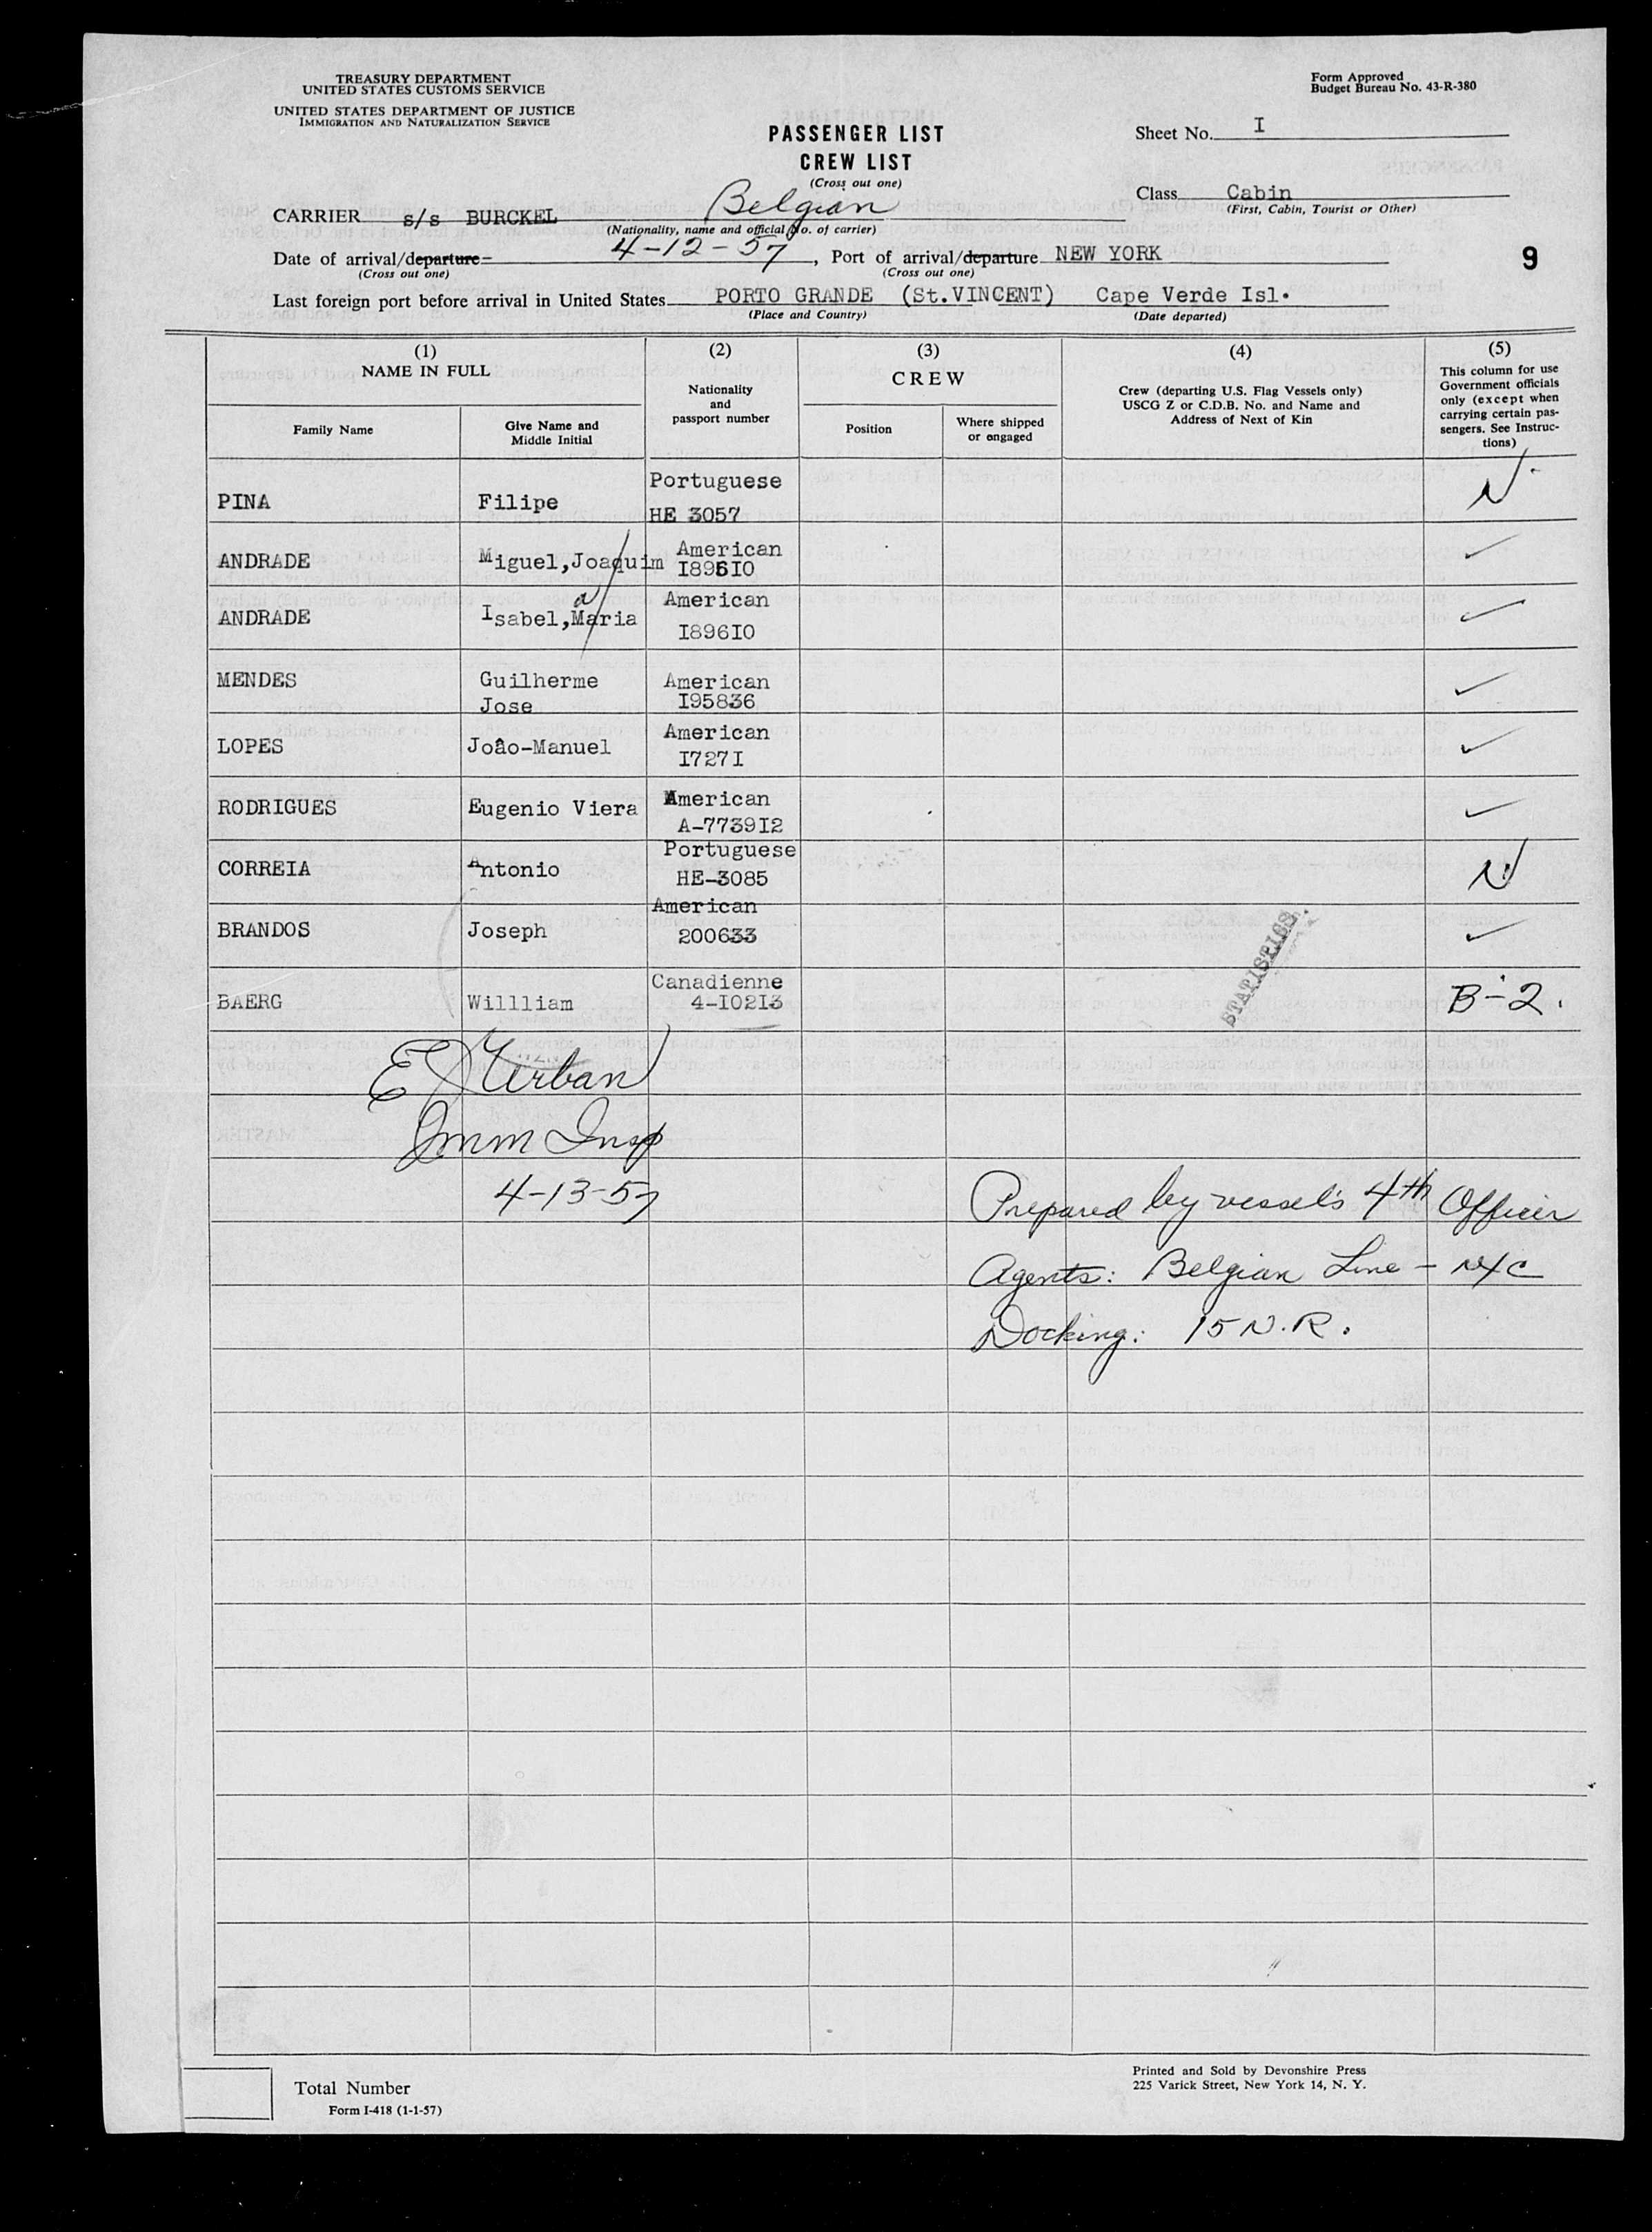 TREASURY DEPARTMENT
UNITED STATES CUSTOMS SERVICE
UNITED STATES DEPARTMENT OF JUSTICE
IMMIGRATION AND NATURALIZATION SERVICE
Form Approved
Budget Bureau No. 43-R-380
PASSENGER LIST
CREW LIST
(Cross out one)
Sheet No. I
Class Cabin
(First, Cabin, Tourist or Other)
CARRIER s/s BURCKEL Belgian
(Nationality, name and official No. of carrier)
Date of arrival/departure 4-12-57, Port of arrival/departure NEW YORK
(Cross out one) (Cross out one)
9
Last foreign port before arrival in United States PORTO GRANDE (St.VINCENT) Cape Verde Isl.
(Place and Country) (Date departed)
(1) NAME IN FULL
Family Name
Give Name and Middle Initial
(2)
Nationality and passport number
(3)
CREW
Position
Where shipped or engaged
(4)
Crew (departing U.S. Flag Vessels only)
USCG Z or C.D.B. No. and Name and
Address of Next of Kin
(5)
This column for use
Government officials
only (except when
carrying certain pas-
sengers. See Instruc-
tions)
PINA Filipe Portuguese HE 3057 N
ANDRADE Miguel,Joaquim American I896I0 ✓
ANDRADE Isabel,Maria American I896I0 ✓
MENDES Guilherme Jose American I95836 ✓
LOPES Joâo-Manuel American I727I ✓
RODRIGUES Eugenio Viera American A-7739I2 ✓
CORREIA Antonio Portuguese HE-3085 N
BRANDOS Joseph American 200633 ✓
BAERG Willliam Canadienne 4-I02I3 B-2.
STATISTICS.
E J Urban
Imm Insp
4-13-57
Prepared by vessel's 4th Officer
Agents: Belgian Line - NYC
Docking: 15 N.R.
Total Number
Form I-418 (1-1-57)
Printed and Sold by Devonshire Press
225 Varick Street, New York 14, N. Y.